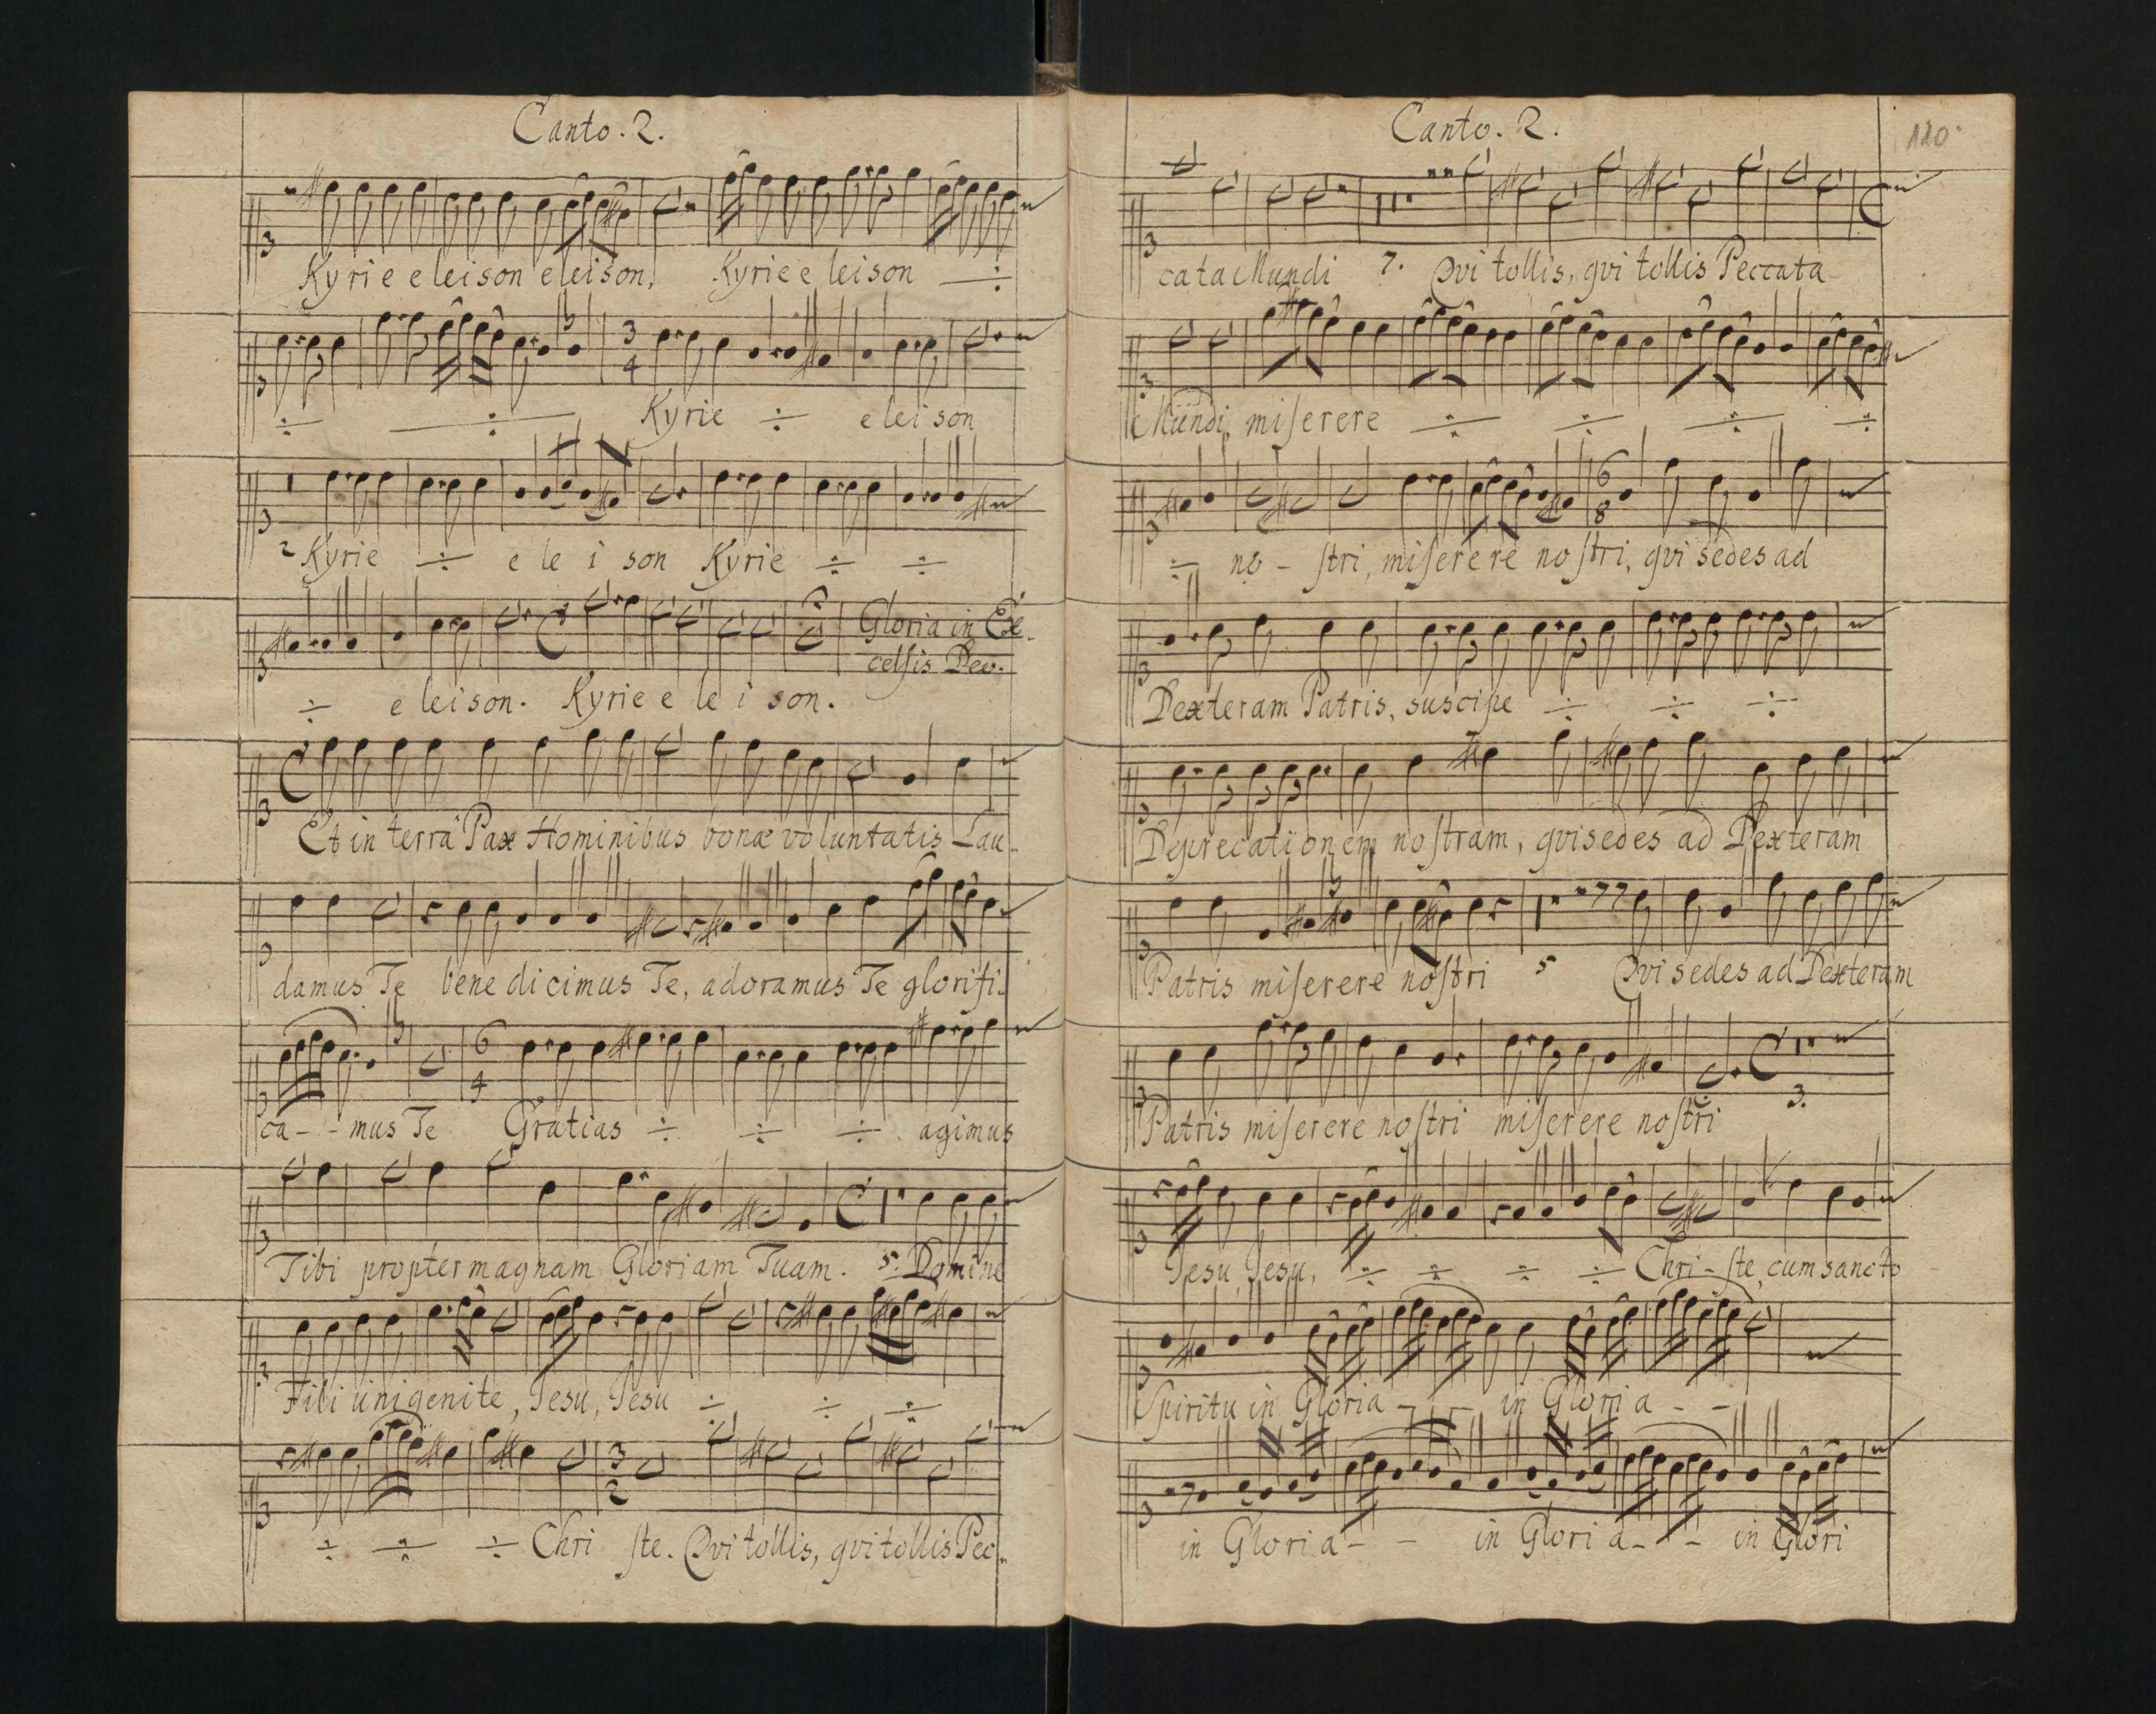 Canto. 2.
Kyrie eleison eleison, Kyrie eleison ÷
÷ ÷ Kyrie ÷ eleison
2 Kyrie ÷ e le i son Kyrie ÷ ÷
Gloria in Ex-
celsis Deo.
÷ eleison. Kyrie e le i son.
Et in terrâ Pax Hominibus bonæ voluntatis Lau-
damus Te benedicimus Te, adoramus Te glorifi-
ca - - mus Te Gratias ÷ ÷ ÷ agimus
Tibi propter magnam Gloriam Tuam. 5. Domine
Fili unigenite, Jesu, Jesu ÷ ÷ ÷
÷ ÷ ÷ Chri ste. Qvi tollis, qvi tollis Pec-
Canto. 2.
120
cata Mundi 7. Qvi tollis, qvi tollis Peccata
Mundi, miserere ÷ ÷ ÷ ÷
÷ no - stri, miserere nostri, qvi sedes ad
Dexteram Patris, suscipe ÷ ÷ ÷
Deprecationem nostram, qvi sedes ad Dexteram
Patris miserere nostri 5 Qvi sedes ad Dexteram
Patris miserere nostri miserere nostri 3.
Jesu, Jesu, ÷ ÷ ÷ ÷ Chri - ste, cum sancto
Spiritu in Gloria - - in Gloria - -
in Gloria - - in Gloria - - in Glori